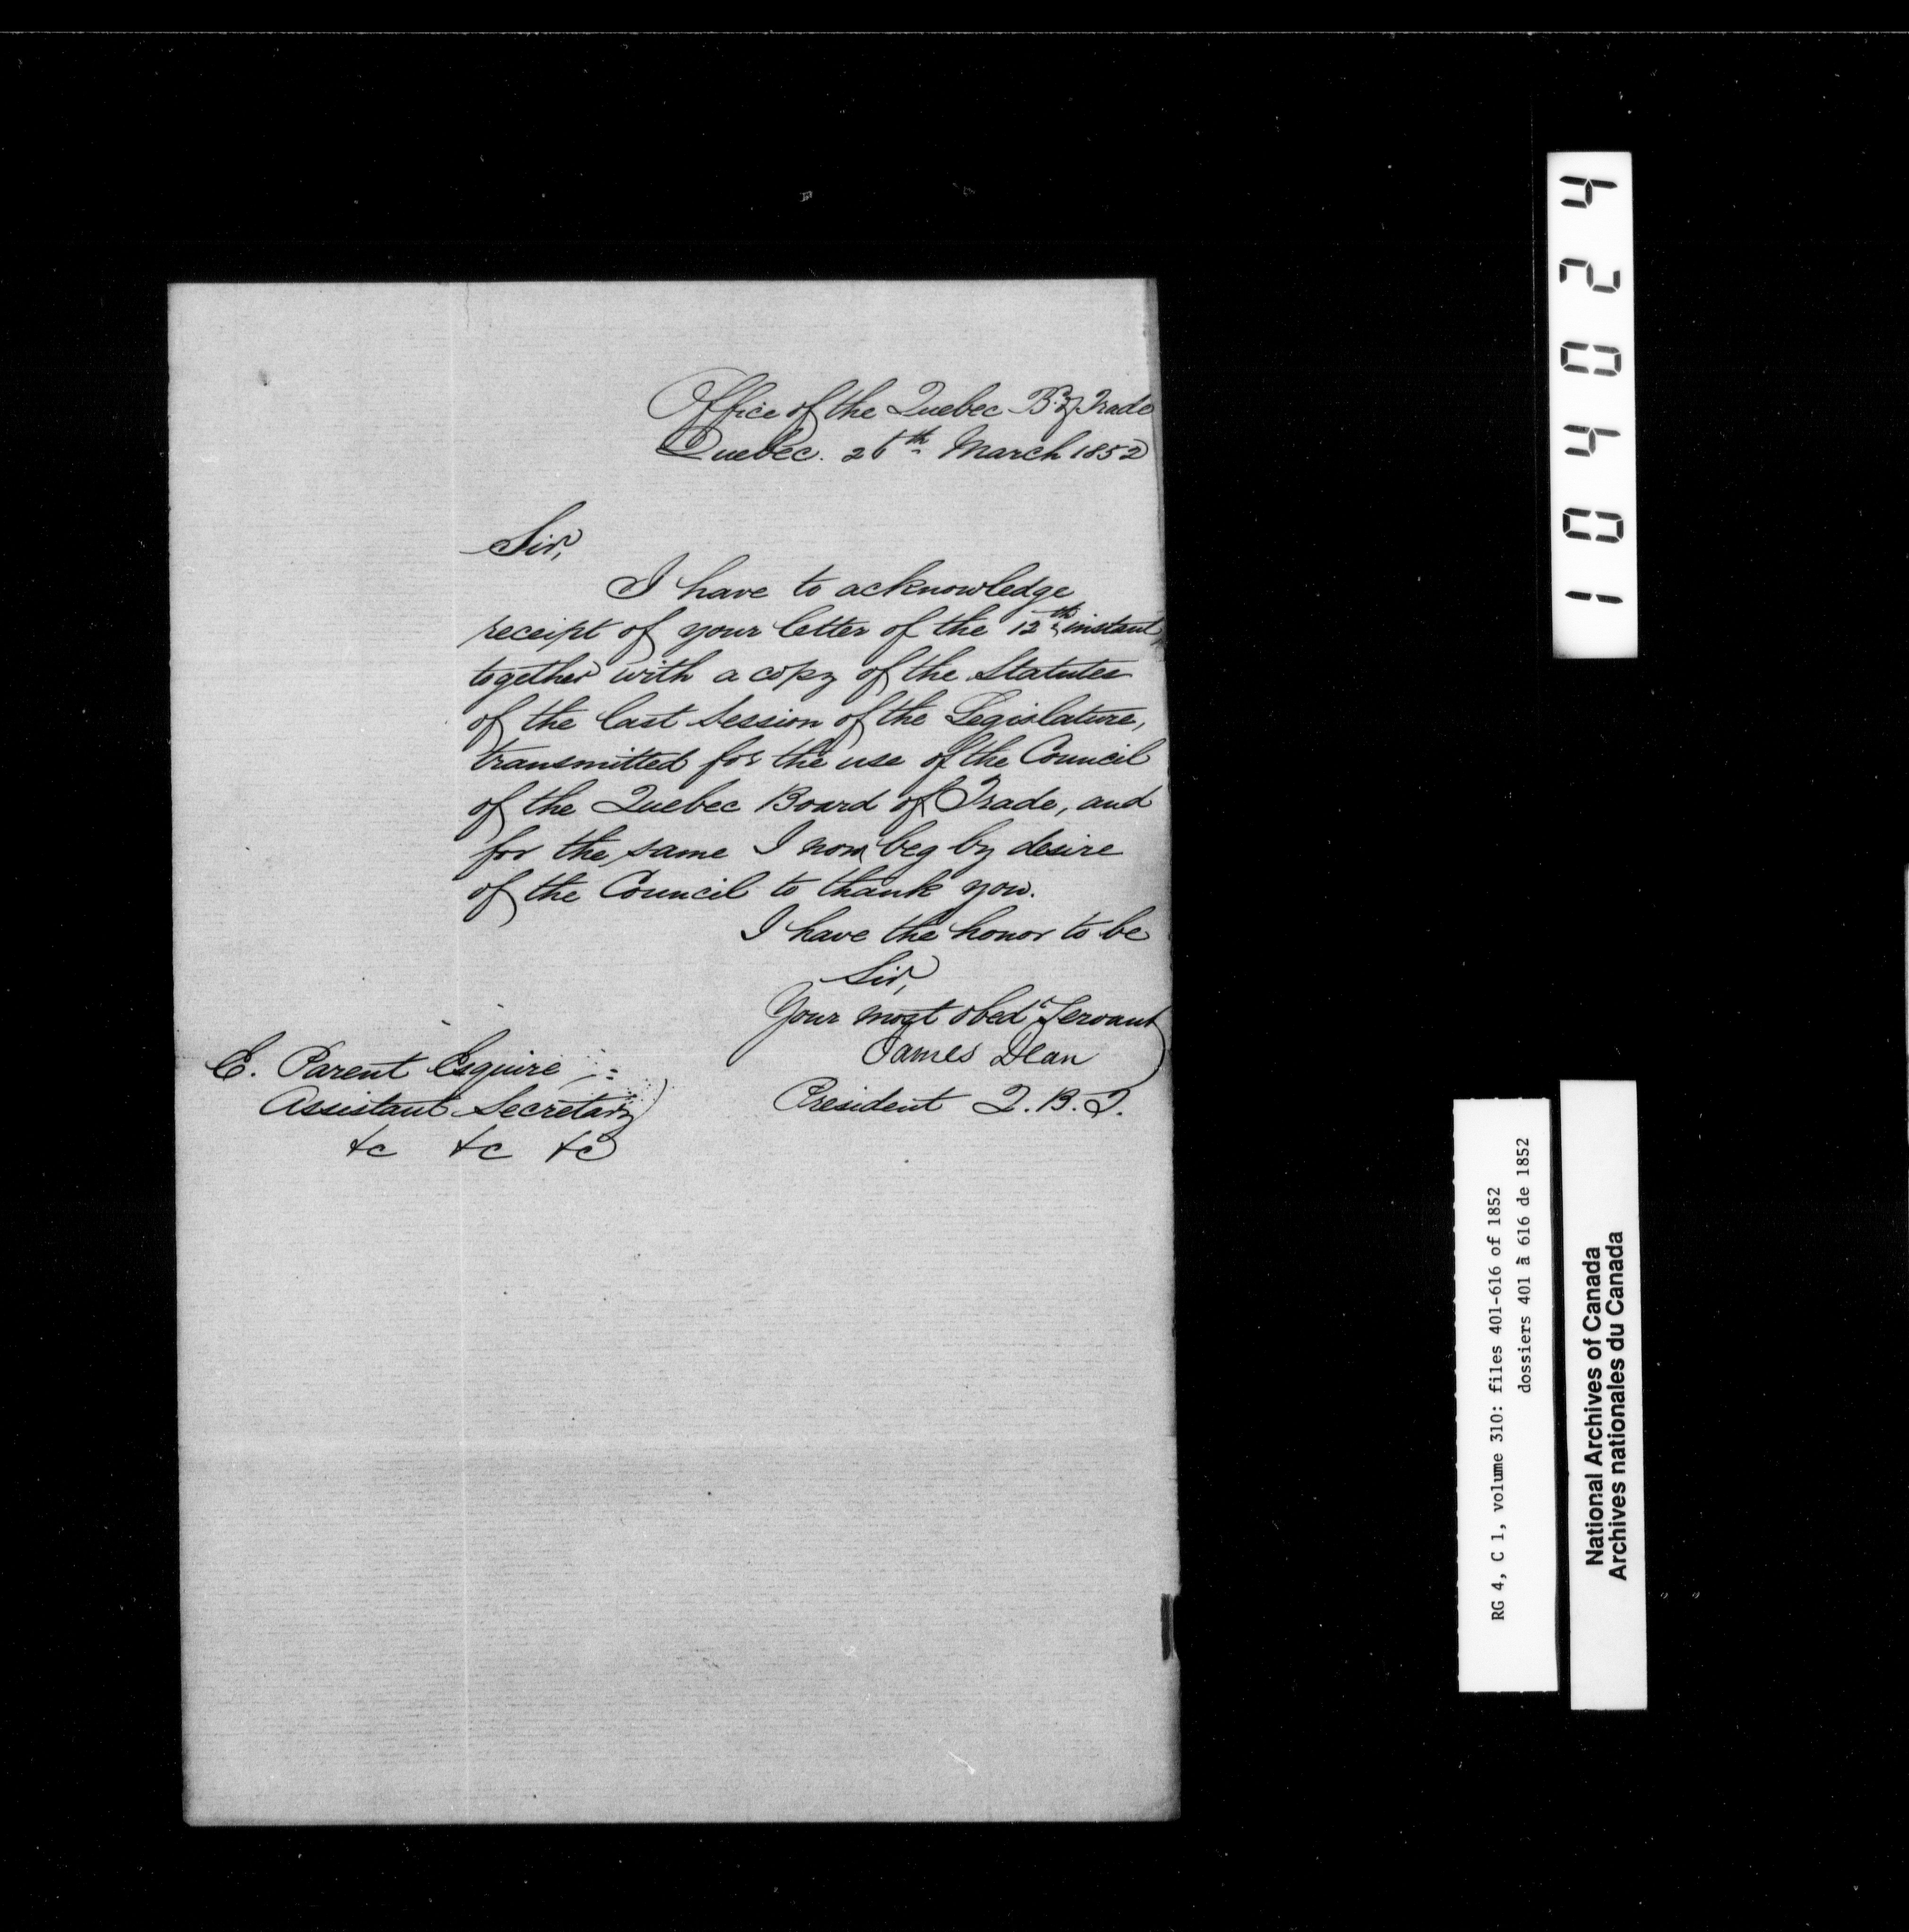 Office of the Quebec B. of Trade
Quebec. 26th March 1852
Sir,
I have to acknowledge
receipt of your letter of the 12th instant,
together with a copy of the Statutes
of the last Session of the Legislature,
transmitted for the use of the Council
of the Quebec Board of Trade, and
for the same I now beg by desire
of the Council to thank you.
I have the honor to be
Sir,
Your most obedt Servant
James Dean
President Q. B. T.
E. Parent Esquire
Assistant Secretary
&c &c &c
104024
RG 4, C 1, volume 310: files 401-616 of 1852
dossiers 401 à 616 de 1852
National Archives of Canada
Archives nationales du Canada